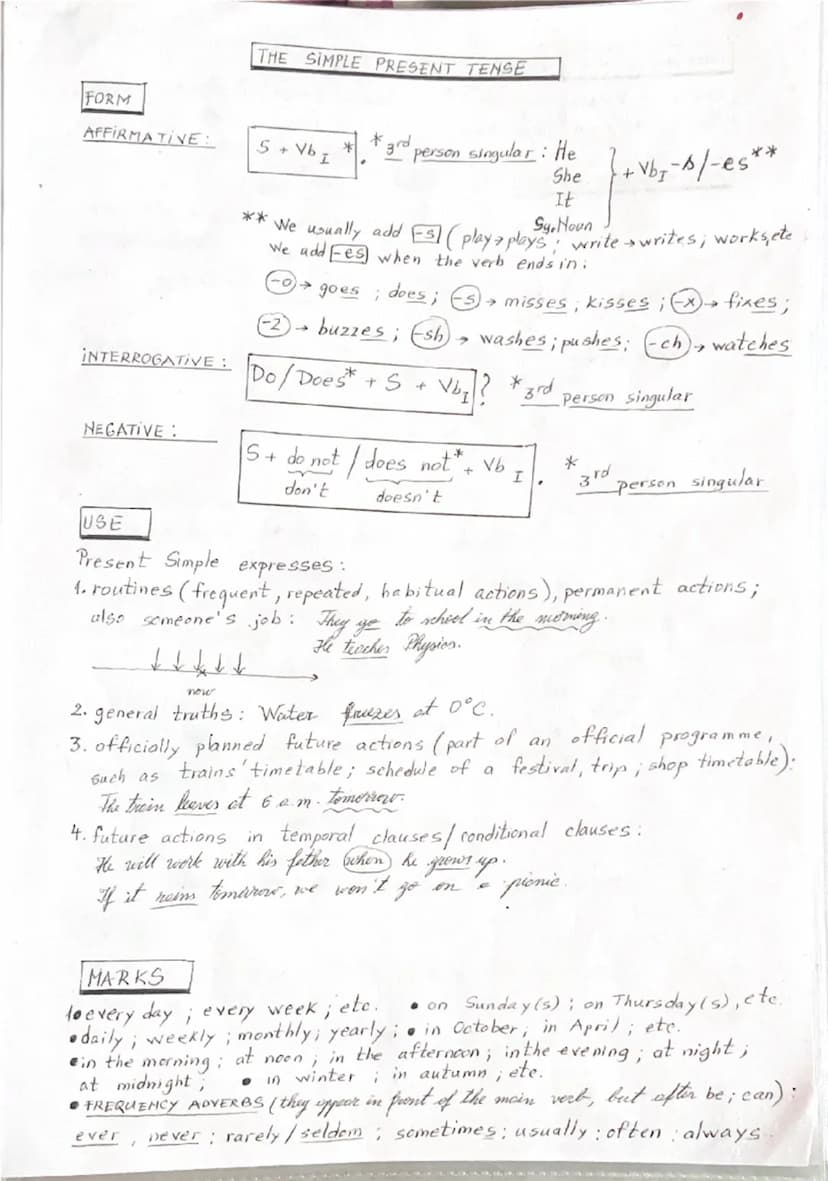 THE SIMPLE PRESENT TENSE
FORM
AFFIRMATIVE:
S + Vb I * . * 3rd person singular : He
She
It
Sg. Noun
} + Vb I -s/-es**
** We usually add -s (play→plays; write→writes; works, etc
We add -es when the verb ends in:
-o → goes ; does; -s → misses; kisses ; -x → fixes;
-z → buzzes ; -sh → washes; pushes; -ch → watches
INTERROGATIVE:
Do/Does* + S + Vb I ? * 3rd person singular
NEGATIVE:
S + do not / does not* + Vb I . * 3rd person singular
don't doesn't
USE
Present Simple expresses:
1. routines (frequent, repeated, habitual actions), permanent actions;
also someone's job: They go to school in the morning.
He teaches Physics.
now
2. general truths: Water freezes at 0°C.
3. officially planned future actions (part of an official programme,
such as trains' timetable; schedule of a festival, trip; shop timetable):
The train leaves at 6 a.m. tomorrow.
4. future actions in temporal clauses/conditional clauses:
He will work with his father when he grows up.
If it rains tomorrow, we won't go on a picnic.
MARKS
• every day ; every week ; etc. • on Sunday(s) ; on Thursday(s), etc.
• daily ; weekly ; monthly; yearly ; • in October ; in April ; etc.
• in the morning ; at noon ; in the afternoon ; in the evening ; at night ;
at midnight ; • in winter ; in autumn ; etc.
• FREQUENCY ADVERBS (they appear in front of the main verb, but after be ; can) :
ever , never ; rarely / seldom ; sometimes ; usually ; often ; always.